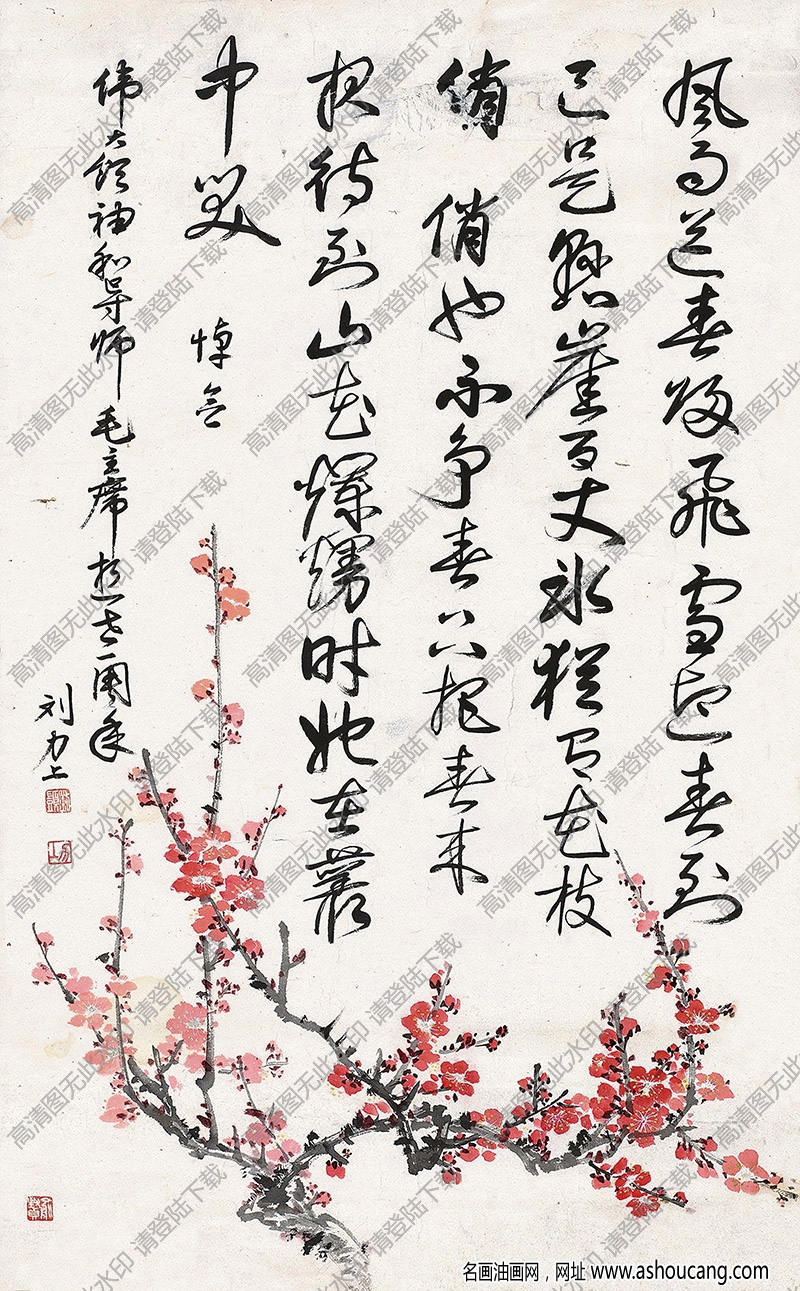 風雨送春归飛雪迎春到
已是懸崖百丈冰猶有花枝
俏 俏也不争春只把春来
报待到山花爛熳时她在叢
中笑 悼念
伟大领袖和导师毛主席逝世一周年
刘力上
高清图无此水印 请登陆下载
名画油画网，网址 www.ashoucang.com